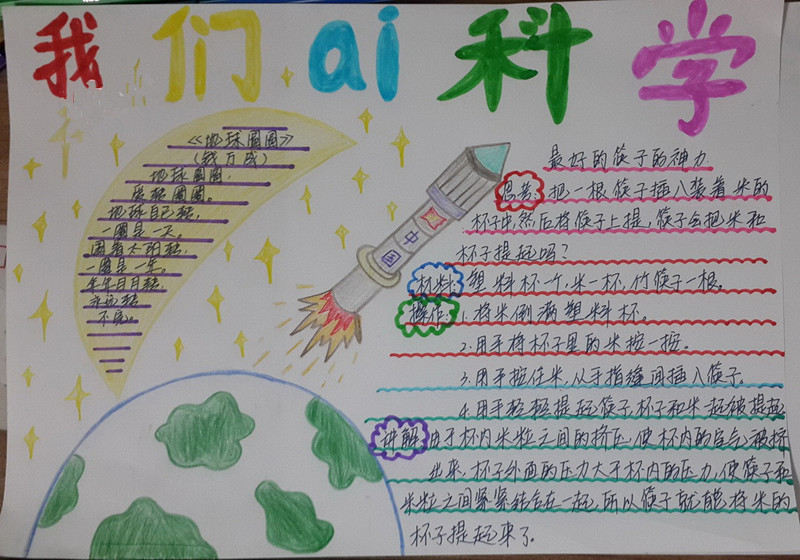 我们ai科学
《地球圈圈》
(钱万成)
地球圆圆,
爱转圈圈。
地球自己转,
一圈是一天。
围着太阳转,
一圈是一年。
年年月月转,
永远转
不完。
中国
最好的筷子的神力
思考:把一根筷子插入装着米的
杯子中,然后将筷子上提,筷子会把米和
杯子提起吗?
材料:塑料杯一个,米一杯,竹筷子一根。
操作:1.将米倒满塑料杯。
2.用手将杯子里的米按一按。
3.用手按住米,从手指缝间插入筷子。
4.用手轻轻提起筷子,杯子和米一起被提起
讲解:由于杯内米粒之间的挤压,使杯内的空气被挤
出来,杯子外面的压力大于杯内的压力,使筷子和
米粒之间紧紧结合在一起,所以筷子就能将米的
杯子提起来了。